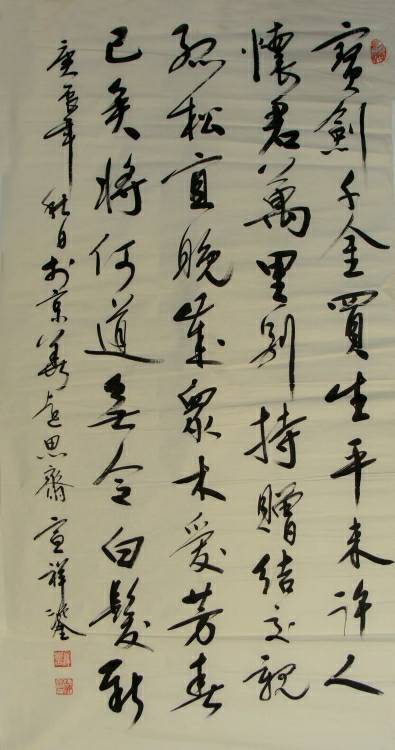 寶劍千金買生平未許人
懷君萬里別持贈結交親
孤松宜晚歲眾木愛芳春
已矣將何道無令白髮新
庚辰年秋日於京華思齋宣祥鎏